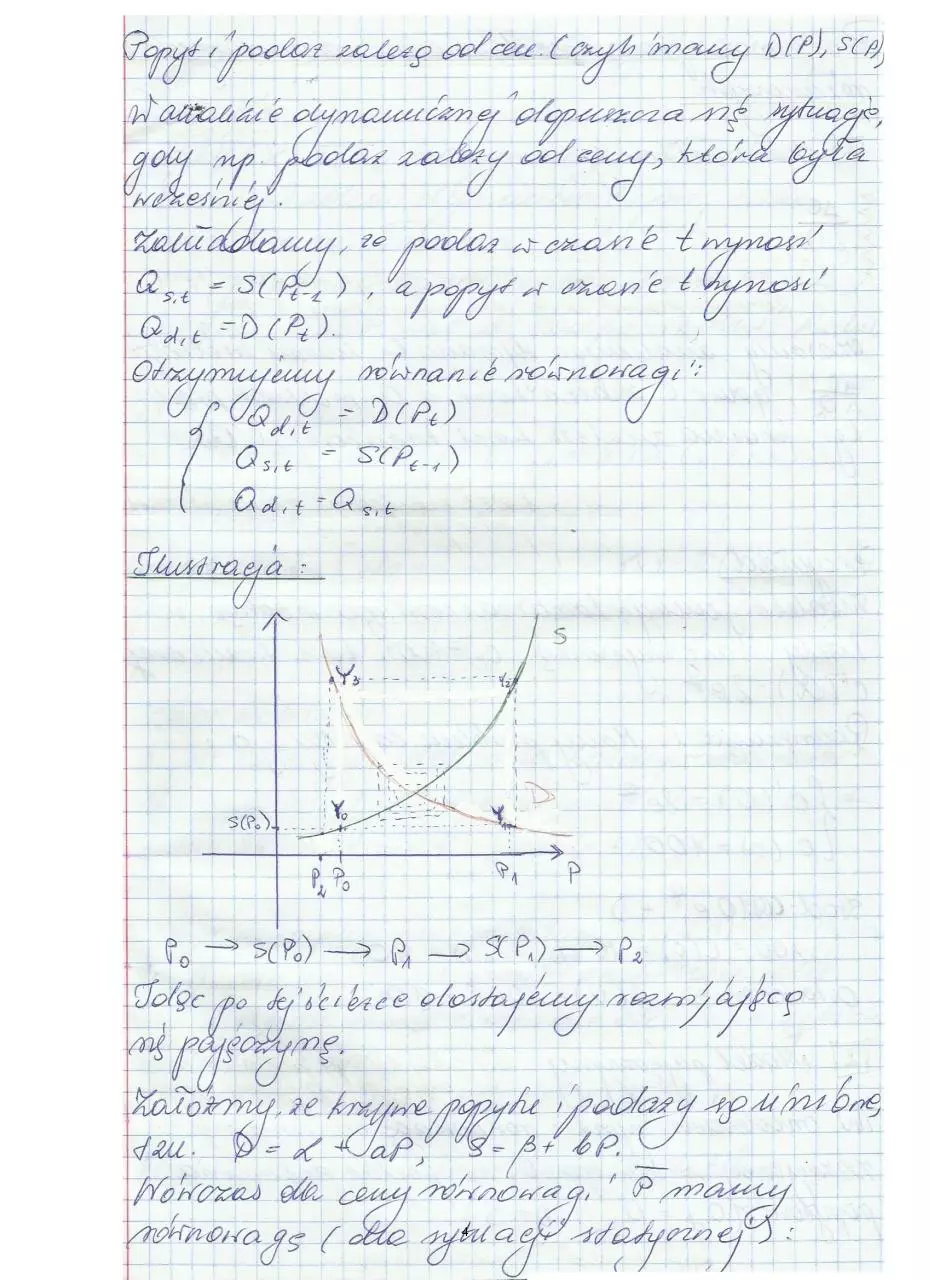 Popyt i podaż zależą od cen. (czyli mamy D(P), S(P)
W analizie dynamicznej dopuszcza się sytuację,
gdy np. podaż zależy od ceny, która była
wcześniej.
Zakładamy, że podaż w czasie t wynosi
Q_{s,t} = S(P_{t-1}), a popyt w czasie t wynosi
Q_{d,t} = D(P_t).
Otrzymujemy równanie równowagi:
Q_{d,t} = D(P_t)
Q_{s,t} = S(P_{t-1})
Q_{d,t} = Q_{s,t}
Ilustracja:
S
Y_3 Y_2
D
Y_0 Y_1
S(P_0)
P_2 P_0 P_1 P
P_0 → S(P_0) → P_1 → S(P_1) → P_2
Idąc po tej ścieżce dostajemy rozwijającą
się pajęczynę.
Załóżmy, że krzywe popytu i podaży są liniowe,
tzn. D = α + aP, S = β + bP.
Wówczas dla ceny równowagi P̄ mamy
równowagę (dla sytuacji statycznej):